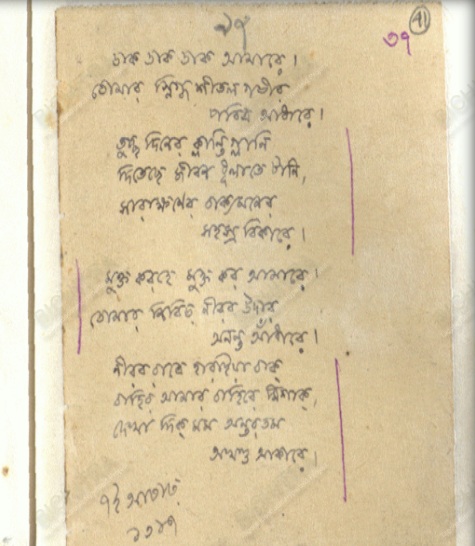 41
৩৭
ডাক ডাক ডাক আমারে।
তোমার স্নিগ্ধ শীতল গভীর
পবিত্র আঁধারে।
তুচ্ছ দিনের ক্লান্তি গ্লানি
দিতেছে জীবন ধুলাতে টানি,
সারাক্ষণের বাক্যমনের
সহস্র বিকারে।
মুক্ত করহে মুক্ত কর আমারে।
তোমার নিবিড় নীরব উদার
অনন্ত আঁধারে।
নীরব রাত্রে হারাইয়া বাক্
বাহির আমার বাহিরে মিশাক্,
দেখা দিক্ মম অন্তরতম
অখণ্ড আকারে।
৭ই আষাঢ়
১৩১৭